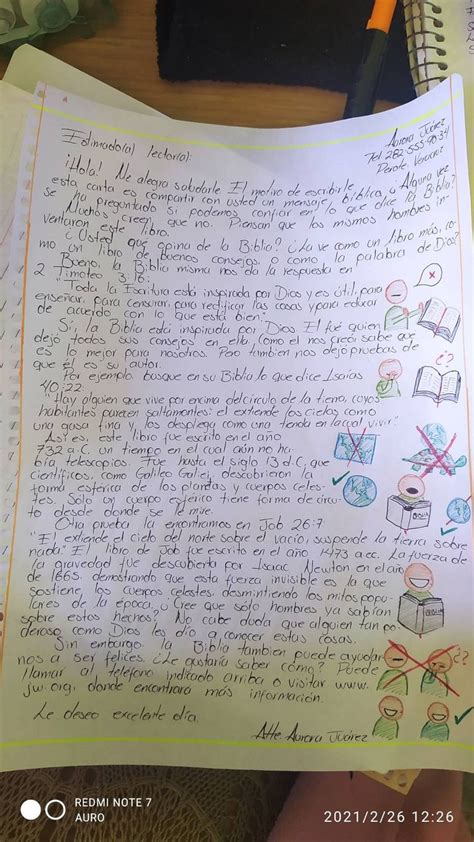 Aurora Juárez
Tel 282-555-90-34
Perote, Veracruz
Estimado(a) lector(a):
¡Hola! Me alegra saludarle. El motivo de escribirle
esta carta es compartir con usted un mensaje bíblico. ¿Alguna vez
se ha preguntado si podemos confiar en lo que dice la Biblia?
Muchos creen que no. Piensan que los mismos hombres in-
ventaron este libro.
¿Usted que opina de la Biblia? ¿La ve como un libro más, co-
mo un libro de buenos consejos, o como la palabra de Dios?
Bueno, la Biblia misma nos da la respuesta en
2 Timoteo 3:16:
"Toda la Escritura está inspirada por Dios y es útil para
enseñar, para censurar, para rectificar las cosas y para educar
de acuerdo con lo que está bien."
Sí, la Biblia está inspirada por Dios. El fué quien
dejó todos sus consejos en ella, como el nos creó sabe que
es lo mejor para nosotros. Pero tambien nos dejó pruebas de
que él es su autor.
Por ejemplo, busque en su Biblia lo que dice Isaías
40:22:
"Hay alguien que vive por encima del círculo de la tierra, cuyos
habitantes parecen saltamontes: el extiende los cielos como
una gasa fina y los despliega como una tienda en la cual vivir."
Así es, este libro fue escrito en el año
732 a.C. un tiempo en el cual aún no ha-
bía telescopios. Fue hasta el siglo 13 d.C. que
científicos, como Galileo Galilei, descubrieron la
forma esférica de los planetas y cuerpos celes-
tes. Sólo un cuerpo esférico tiene forma de círcu-
lo desde donde se le mire.
Otra prueba la encontramos en Job 26:7
"El extiende el cielo del norte sobre el vacío, suspende la tierra sobre
nada." El libro de Job fue escrito en el año 1473 a.e.c. La fuerza de
la gravedad fue descubierta por Isaac Newton en el año
de 1665, demostrando que esta fuerza invisible es la que
sostiene los cuerpos celestes, desmintiendo los mitos popu-
lares de la época. ¿Cree que sólo hombres ya sabían
sobre estos hechos? No cabe duda que alguien tan po-
deroso como Dios les dio a conocer estas cosas.
Sin embargo, la Biblia tambien puede ayudar-
nos a ser felices. ¿Le gustaría saber cómo? Puede
llamar al teléfono indicado arriba o visitar www.
jw.org, donde encontrará más información.
Le deseo excelente día.
Atte. Aurora Juárez
REDMI NOTE 7
AURO
2021/2/26 12:26